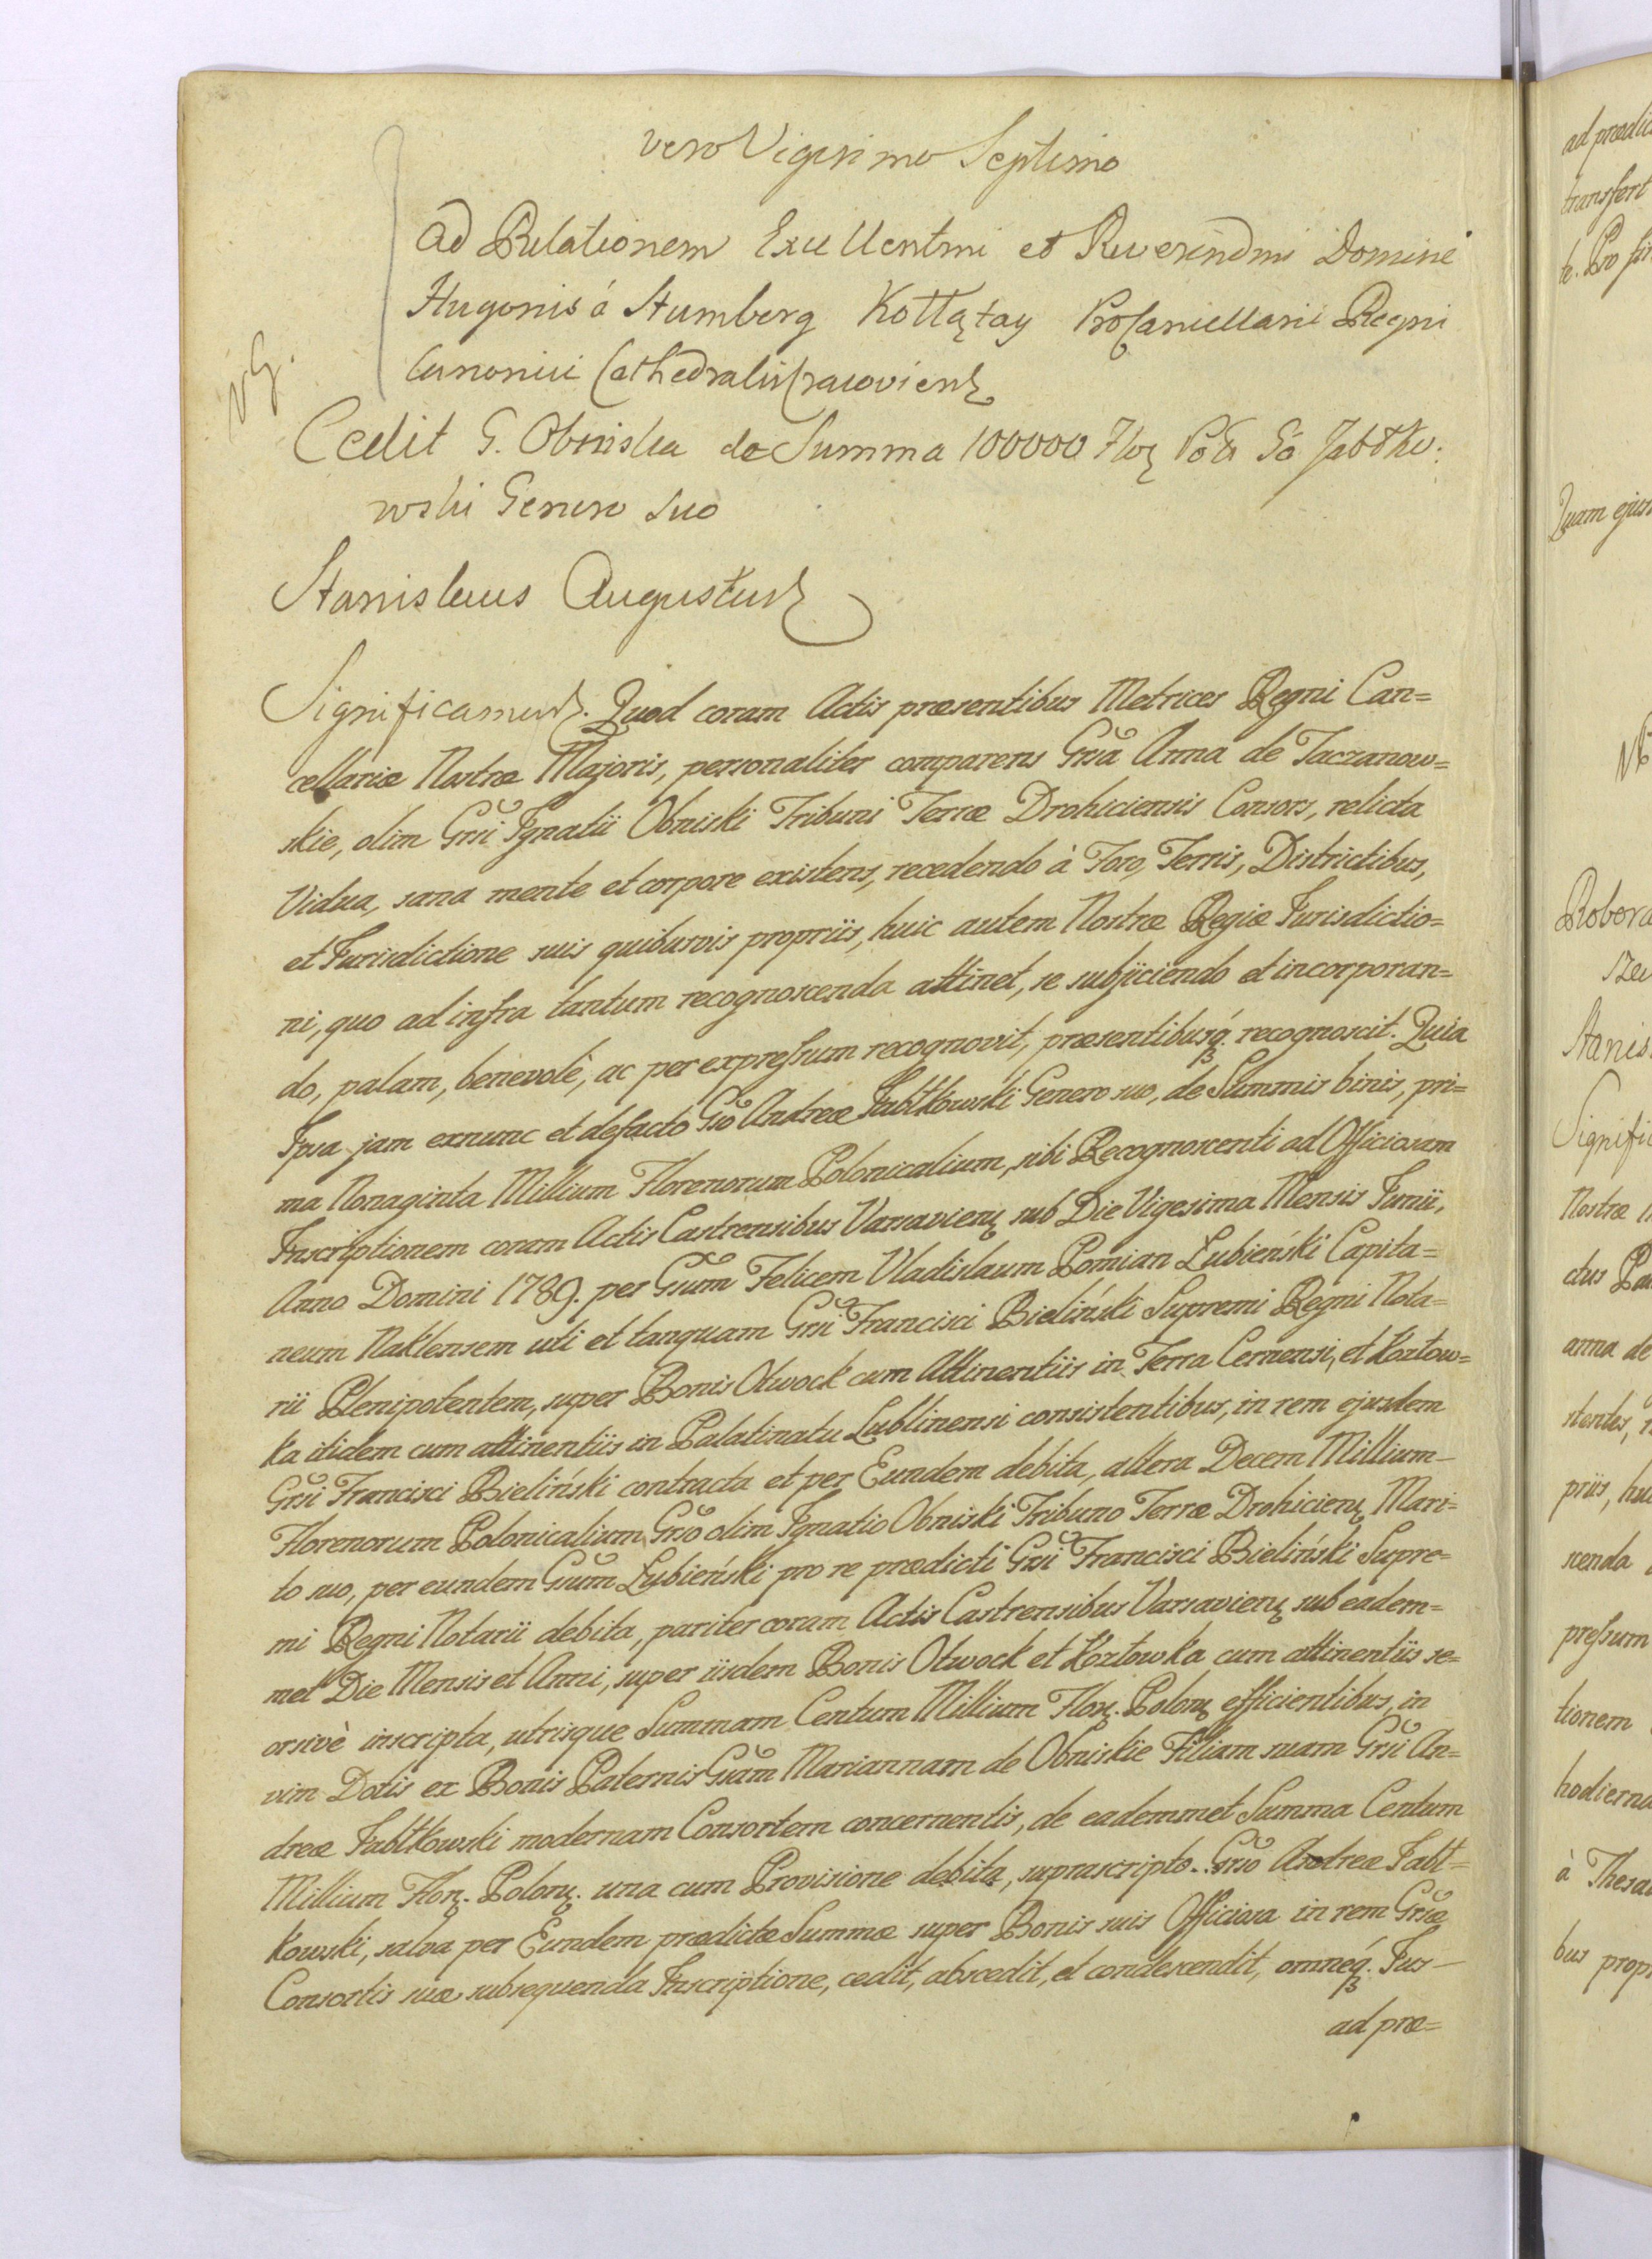 vero Vigesimo Septimo
Ad Relationem Excellentmi et Reverendmi Domini
Hugonis á Stumberg Kołłątay ProCancellarii Regni
Canonici Cathedralis Cracoviens
NG.
Cedit G. Obniska de Summa 100000 Flor Pol Go Jabłko:
wski Genero suo
Stanislaus Augustus
Significamus. Quod coram Actis præsentibus Metrices Regni Can=
cellariæ Nostræ Majoris, personaliter comparens Grsa Anna de Taczanow=
skie, olim Grsi Ignatii Obniski Tribuni Terræ Drohiciensis Consors, relicta
Vidua, sana mente et corpore existens, recedendo à Foro, Terris, Districtibus,
et Jurisdictione suis quibusvis propriis, huic autem Nostræ Regiæ Jurisdictio=
ni, quo ad infra tantum recognoscenda attinet, se subjiciendo et incorporan=
do, palam, benevolè, ac per expressum recognovit, præsentibusq. recognoscit. Quia
Ipsa jam exnunc et defacto Gso Andreæ Jabłkowski Genero suo, de Summis binis, pri=
ma Nonaginta Millium Florenorum Polonicalium, sibi Recognoscenti ad Officiosam
Inscriptionem coram Actis Castrensibus Varsaviens sub Die Vigesima Mensis Junii,
Anno Domini 1789. per Gsum Felicem Vladislaum Pomian Łubieński Capita=
neum Naklensem uti et tanquam Grsi Francisci Bieliński Supremi Regni Nota=
rii Plenipotentem, super Bonis Otwock cum Attinentiis in Terra Cernensi, et Kozłow=
ka itidem cum attinentiis in Palatinatu Lublinensi consistentibus, in rem ejusdem
Grsi Francisci Bieliński contracta et per Eundem debita, altera Decem Millium
Florenorum Polonicalium Grso olim Ignatio Obniski Tribuno Terræ Drohiciens Mari=
to suo, per eundem Gsum Łubieński pro re prædicti Grsi Francisci Bieliński Supre=
mi Regni Notarii debita, pariter coram Actis Castrensibus Varsaviens sub eadem=
met Die Mensis et Anni, super iisdem Bonis Otwock et Kozłowka cum attinentiis se=
orsivè inscripta, utrisque Summam Centum Millium Flor. Polon. efficientibus, in
vim Dotis ex Bonis Paternis Gsam Mariannam de Obniskie Filiam suam Grsi An=
dreæ Jabłkowski modernam Consortem concernentis, de eademmet Summa Centum
Millium Flor. Polon. una cum Provisione debita, suprascripto Grso Andreæ Jabł=
kowski, salva per Eundem prædictæ Summæ super Bonis suis Officiosa in rem Grsæ
Consortis suæ subsequenda Inscriptione, cedit, abscedit, et condescendit, omneq. Jus
ad præ=